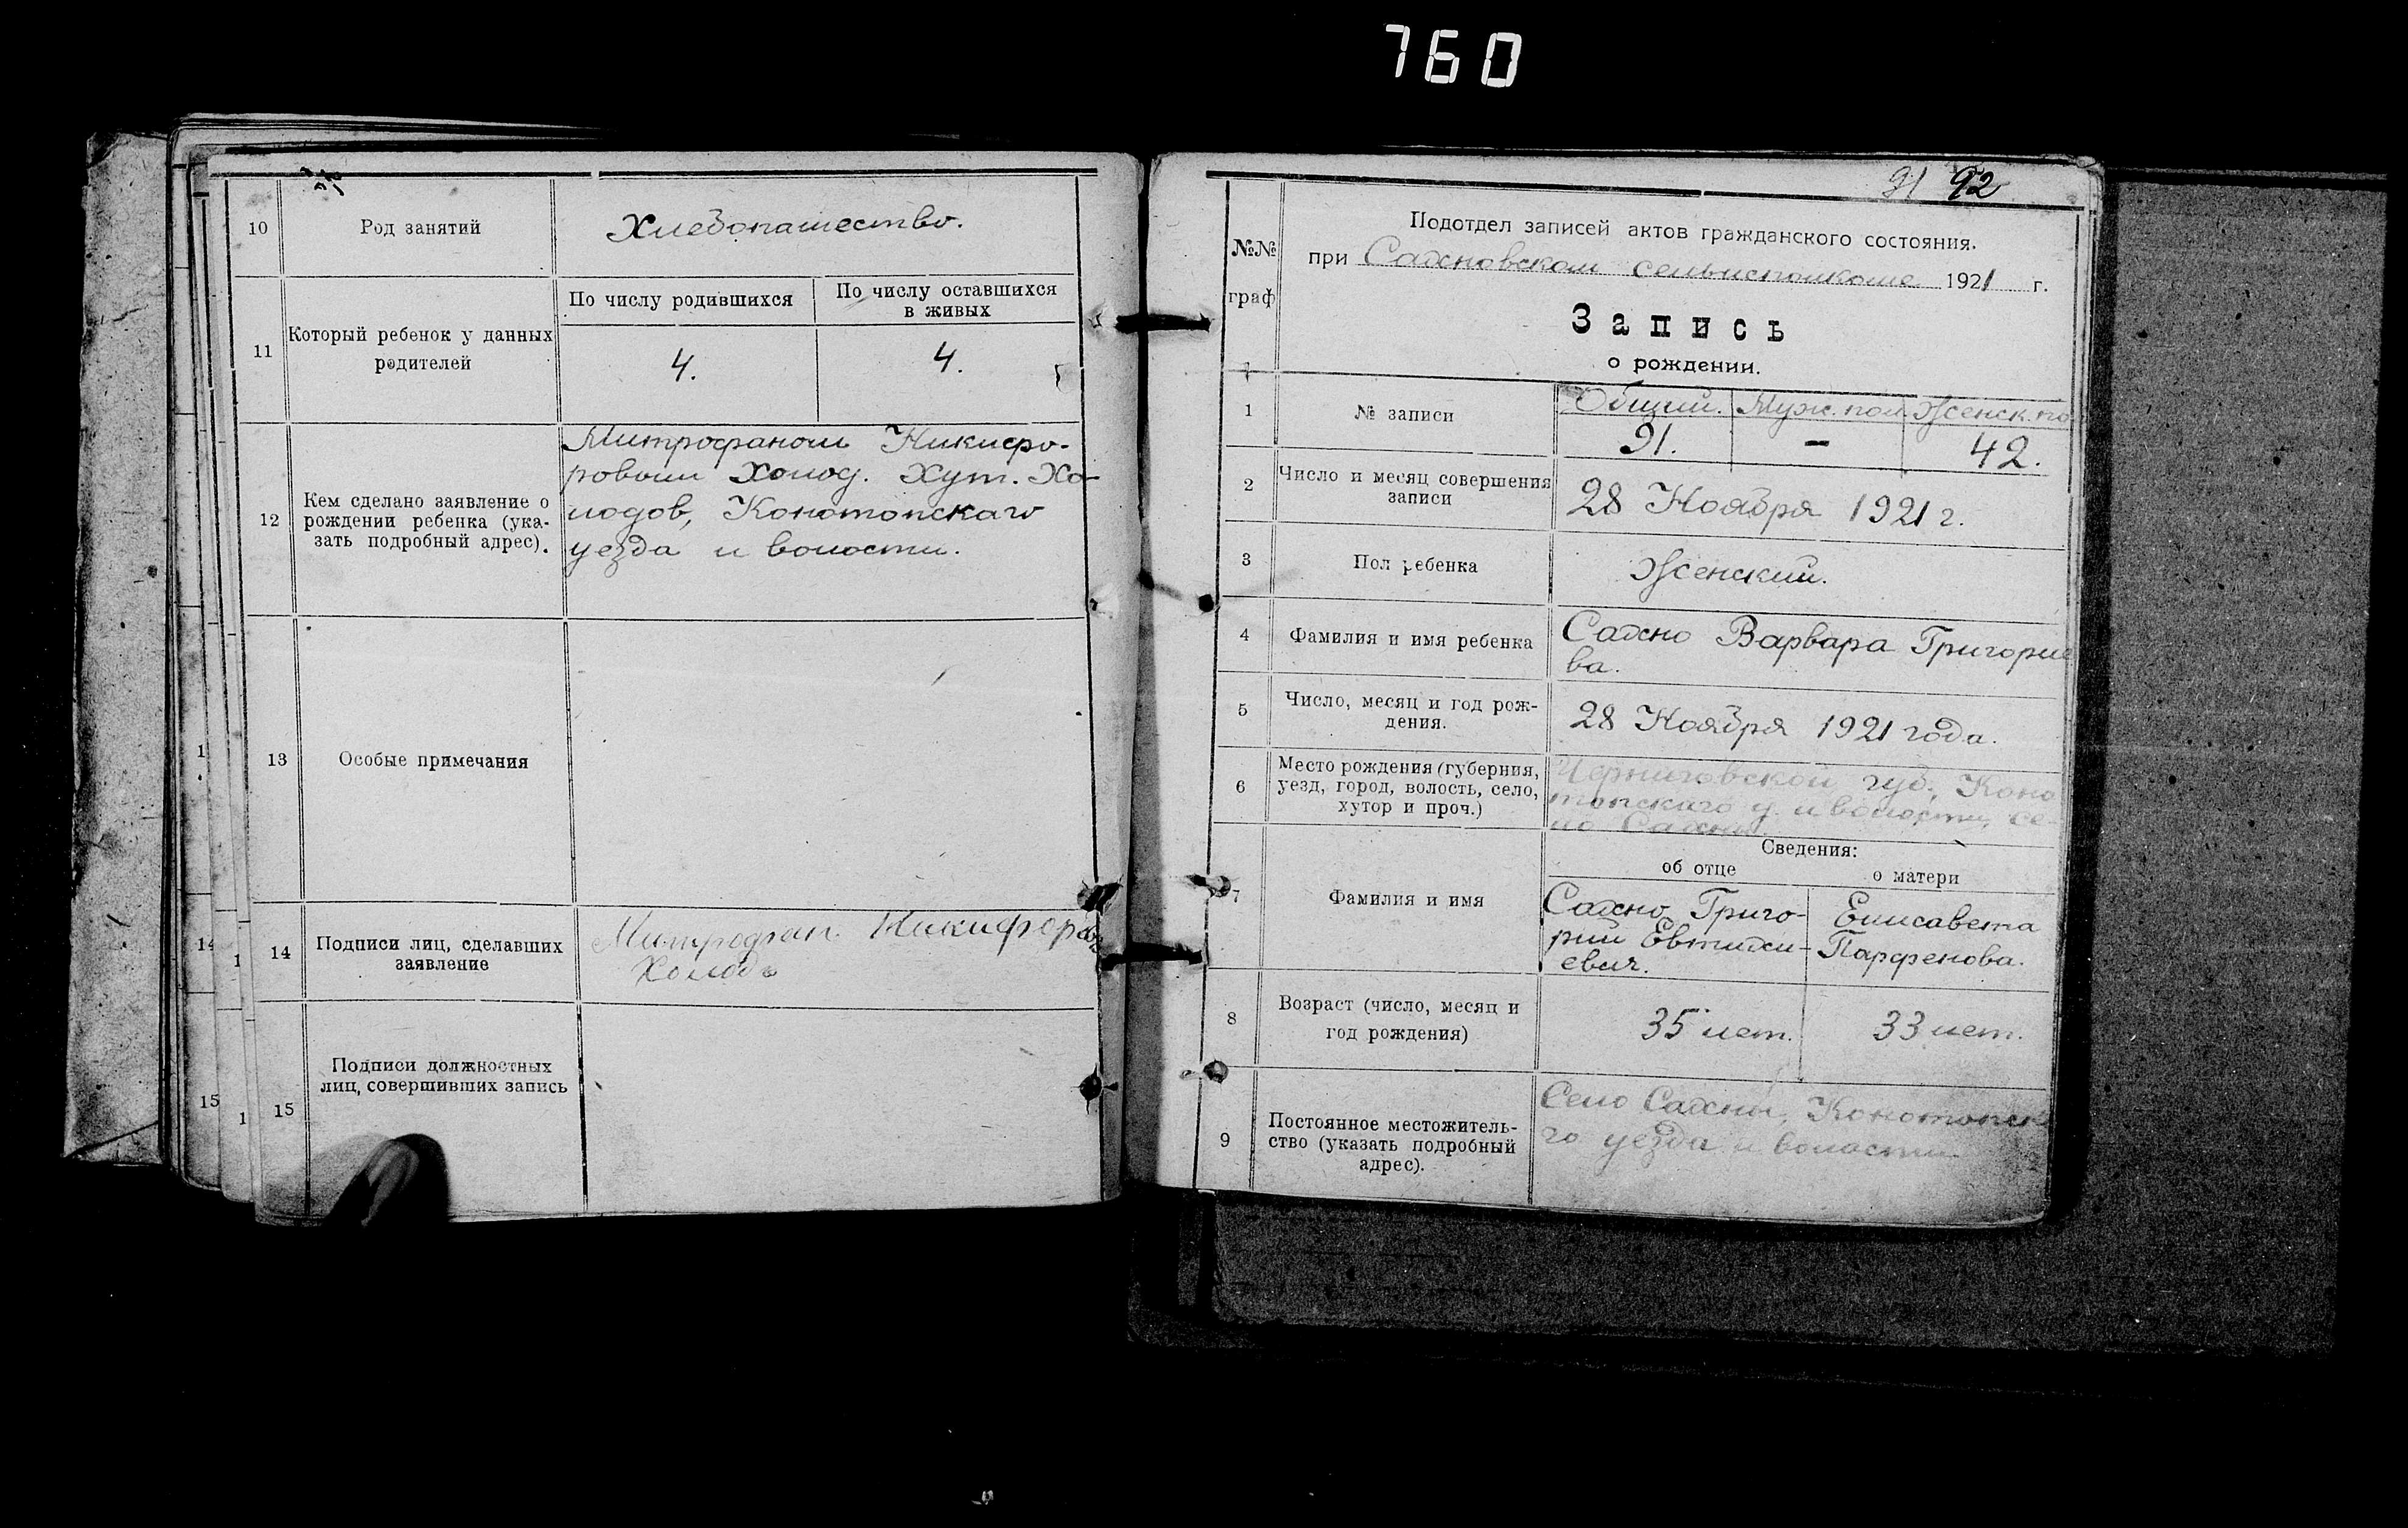 760
10
Род занятий
Хлебопашество.
11
Который ребенок у данных
родителей
По числу родившихся
По числу оставшихся
в живых
4.
4.
12
Кем сделано заявление о
рождении ребенка (ука-
зать подробный адрес).
Митрофаном Никифо-
ровым Холод. Хут. Хо-
лодов, Конотопскаго
уезда и волости.
13
Особые примечания
14
Подписи лиц, сделавших
заявление
Митрофан Никифоров
Холодъ
15
Подписи должностных
лиц, совершивших запись
1
14
1
15
1
91 92
№№
граф
Подотдел записей актов гражданского состояния.
при Сахновском сельисполкоме 1921 г.
Запись
о рождении.
1
№ записи
Общий. Муж. пол. Женск. по
91. — 42.
2
Число и месяц совершения
записи
28 Ноября 1921 г.
3
Пол ребенка
Женский.
4
Фамилия и имя ребенка
Сахно Варвара Григорие
ва.
5
Число, месяц и год рож-
дения.
28 Ноября 1921 года.
6
Место рождения (губерния,
уезд, город, волость, село,
хутор и проч.)
Черниговской губ., Коно
топскаго у. и волости, се-
ло Сахны.
Сведения:
об отце
о матери
7
Фамилия и имя
Сахно Григо-
рий Евтихи-
евич.
Елисавета
Парфенова.
8
Возраст (число, месяц и
год рождения)
35 лет.
33 лет.
9
Постоянное местожитель-
ство (указать подробный
адрес).
Село Сахны, Конотопска
го уезда и волости